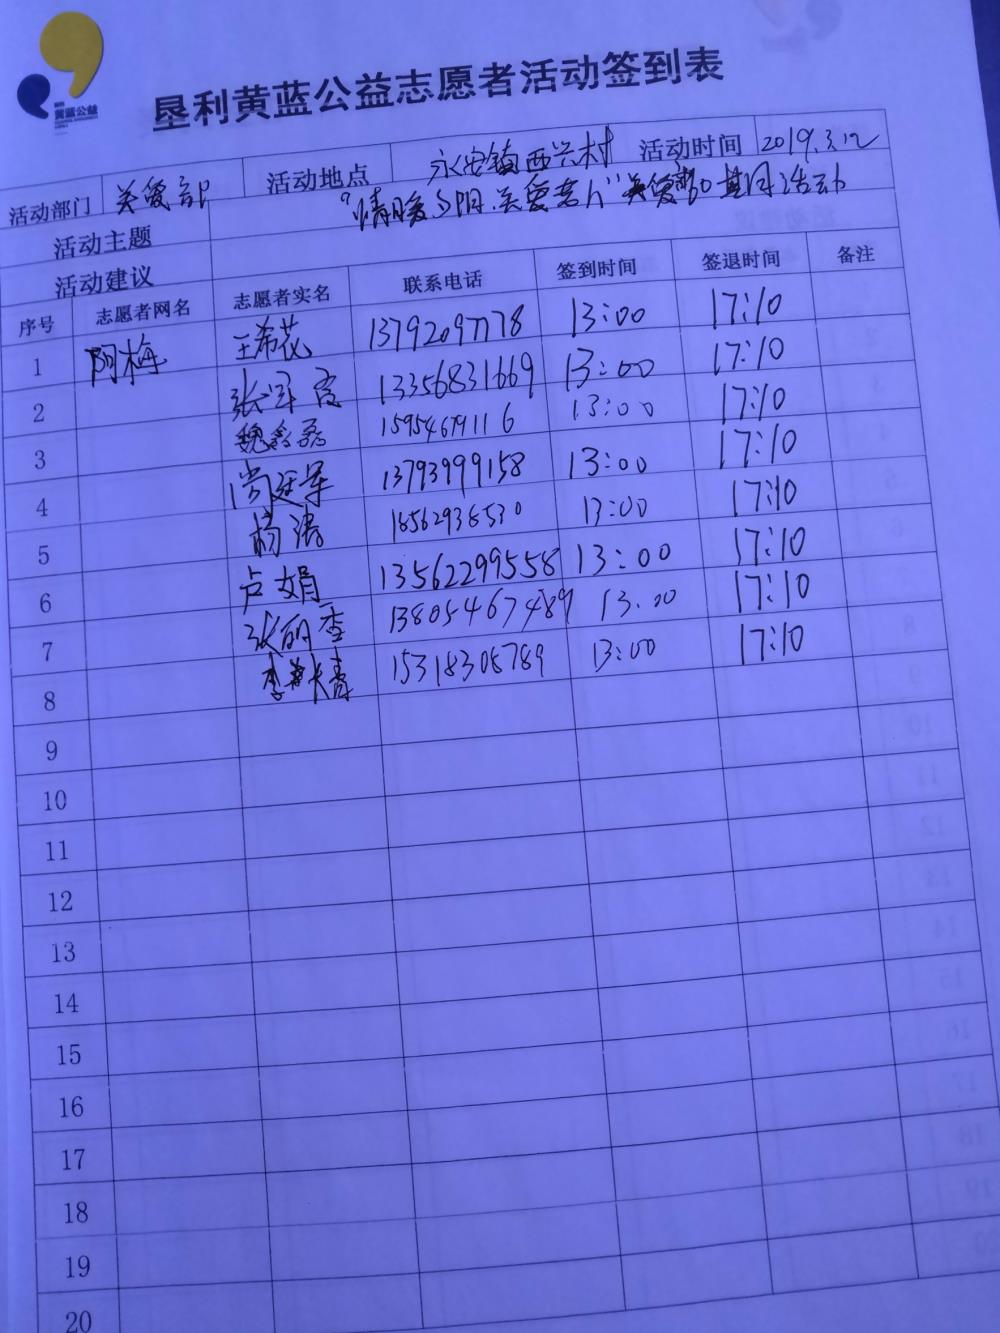 黄蓝公益
垦利黄蓝公益志愿者活动签到表
活动部门 关爱部 活动地点 永安镇西兴村 活动时间 2019.3.12
活动主题 "情暖夕阳.关爱老人"关爱部3月活动
活动建议
序号 志愿者网名 志愿者实名 联系电话 签到时间 签退时间 备注
1 阿梅 王希花 13792097178 13:00 17:10
2 张 13356831669 13:00 17:10
3 魏 15954679116 13:00 17:10
4 尚廷军 13793999158 13:00 17:10
5 杨洁 18562936530 13:00 17:10
6 卢娟 13562299558 13:00 17:10
7 张丽香 13805467489 13.00 17:10
8 李长青 15318305789 13:00 17:10
9
10
11
12
13
14
15
16
17
18
19
20